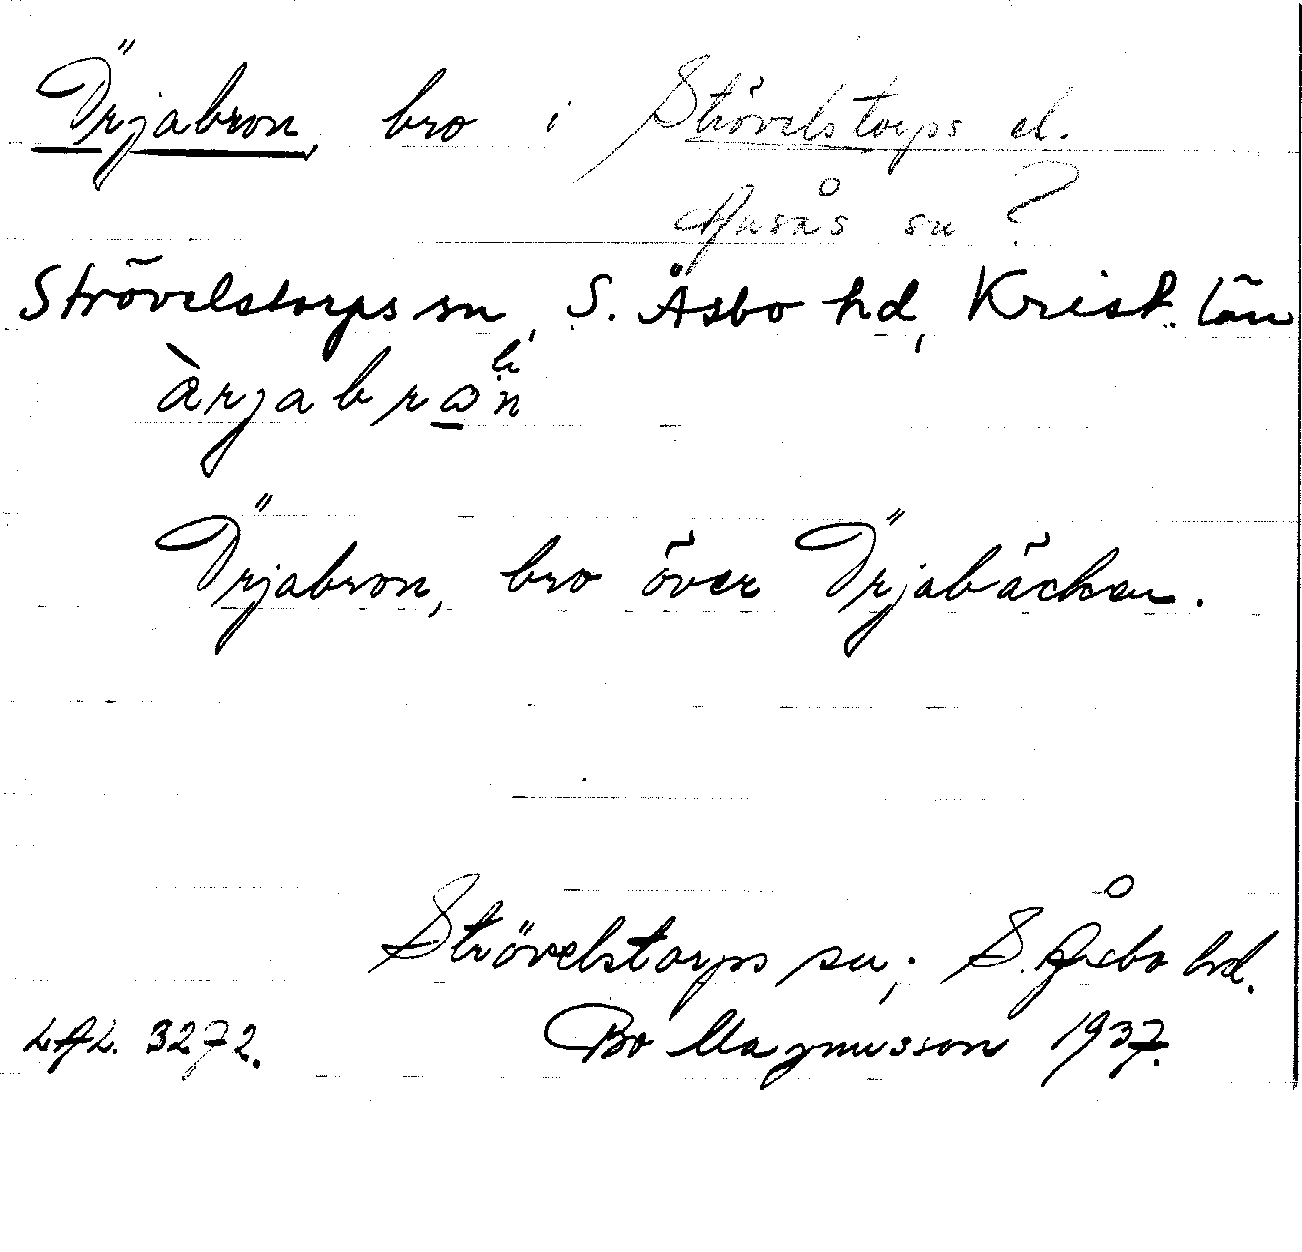 Örjabron, bro i Strövelstorps el.
Ausås sn?
Strövelstorps sn, S. Åsbo hd, Krist. län
àrjabron
Örjabron, bro över Örjabäcken.
Strövelstorps sn; S. Åsbo hd.
LAL. 3272. Bo Magnusson 1937.